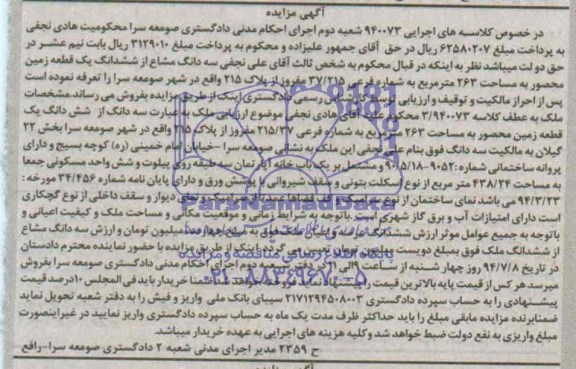 آگهی مزایده
در خصوص کلاسه های اجرایی ۹۴۰۰۷۳ شعبه دوم اجرای احکام مدنی دادگستری صومعه سرا محکومیت هادی نجفی
به پرداخت مبلغ ۶۲۵۸۰۲۰۷ ریال در حق آقای جمهور علیزاده و محکوم به پرداخت مبلغ ۳۱۲۹۰۱۰ ریال بابت نیم عشر در
حق دولت میباشد نظر به اینکه در قبال محکوم به شخص ثالث آقای علی نجفی سه دانگ مشاع از ششدانگ یک قطعه زمین
محصور به مساحت ۲۶۳ مترمربع به شماره فرعی ۳۷/۲۱۵ مفروز از پلاک ۲۱۵ واقع در شهر صومعه سرا را تعرفه نموده است
پس از احراز مالکیت و توقیف و ارزیابی توسط کارشناس رسمی دادگستری اینک از طریق مزایده بفروش می رساند مشخصات
ملک به عطف کلاسه ۳/۹۴۰۰۷۳ محکوم علیه آقای هادی نجفی موضوع ارزیابی ملک به عبارت سه دانگ از شش دانگ یک
قطعه زمین محصور به مساحت ۲۶۳ مترمربع به شماره فرعی ۲۱۵/۳۷ مفروز از پلاک ۲۱۵ واقع در شهر صومعه سرا بخش ۲۲
گیلان به مالکیت سه دانگ فوق بنام علی نجفی این ملک به نشانی صومعه سرا -خیابان امام خمینی (ره) کوچه بسیج و دارای
پروانه ساختمانی شماره :۹۰۵۲-۹۰/۵/۱۸ و مشتمل بر یک باب خانه آپارتمان سه طبقه روی پیلوت و شش واحد مسکونی جمعا
به مساحت ۴۳۸/۲۴ متر مربع از نوع اسکلت بتونی و سقف شیروانی با پوشش ورق و دارای پایان نامه شماره ۳۴/۴۵۶ مورخه :
۹۴/۳/۲۳ می باشد نمای ساختمان از نوع دیوار و سقف داخلی از نوع گچکاری
است دارای امتیازات آب و برق گاز شهری است .باتوجه به شرایط زمانی و موقعیت مکانی و مساحت ملک و کیفیت اعیانی و
باتوجه به جمیع عوامل موثر ارزش ششدانگ عرصه و اعیان ملک فوق به مبلغ چهارصد میلیون تومان و ارزش سه دانگ مشاع
از ششدانگ ملک فوق بمبلغ دویست میلیون تومان تعیین می گردد اینک از طریق مزایده با حضور نماینده محترم دادستان
در تاریخ ۹۴/۷/۸ روز چهار شنبه از ساعت ۹ الی ۱۱ در دفتر شعبه دوم اجرای احکام مدنی دادگستری صومعه سرا بفروش
میرسد هر کس از قیمت پایه بالاترین قیمت را پیشنهاد نماید ضمنا خریدار باید فی المجلس ۱۰ درصد قیمت
پیشنهادی را به حساب سپرده دادگستری ۲۱۷۱۲۹۴۵۰۸۰۰۳ سیبای بانک ملی واریز و فیش را به دفتر شعبه تحویل نماید
ضمنابرنده مزایده مابقی مبلغ را باید حداکثر ظرف مدت یک ماه به حساب سپرده دادگستری واریز نمایید در غیر اینصورت
مبلغ واریزی به نفع دولت ضبط خواهد شد و کلیه هزینه های اجرایی به عهده خریدار میباشد.
ح ۲۳۵۹ مدیر اجرای مدنی شعبه ۲ دادگستری صومعه سرا-رافع
ParsNamadData
پایگاه اطلاع رسانی مناقصه و مزایده
۰۲۱-۸۸۳۴۹۶۷۰-۵